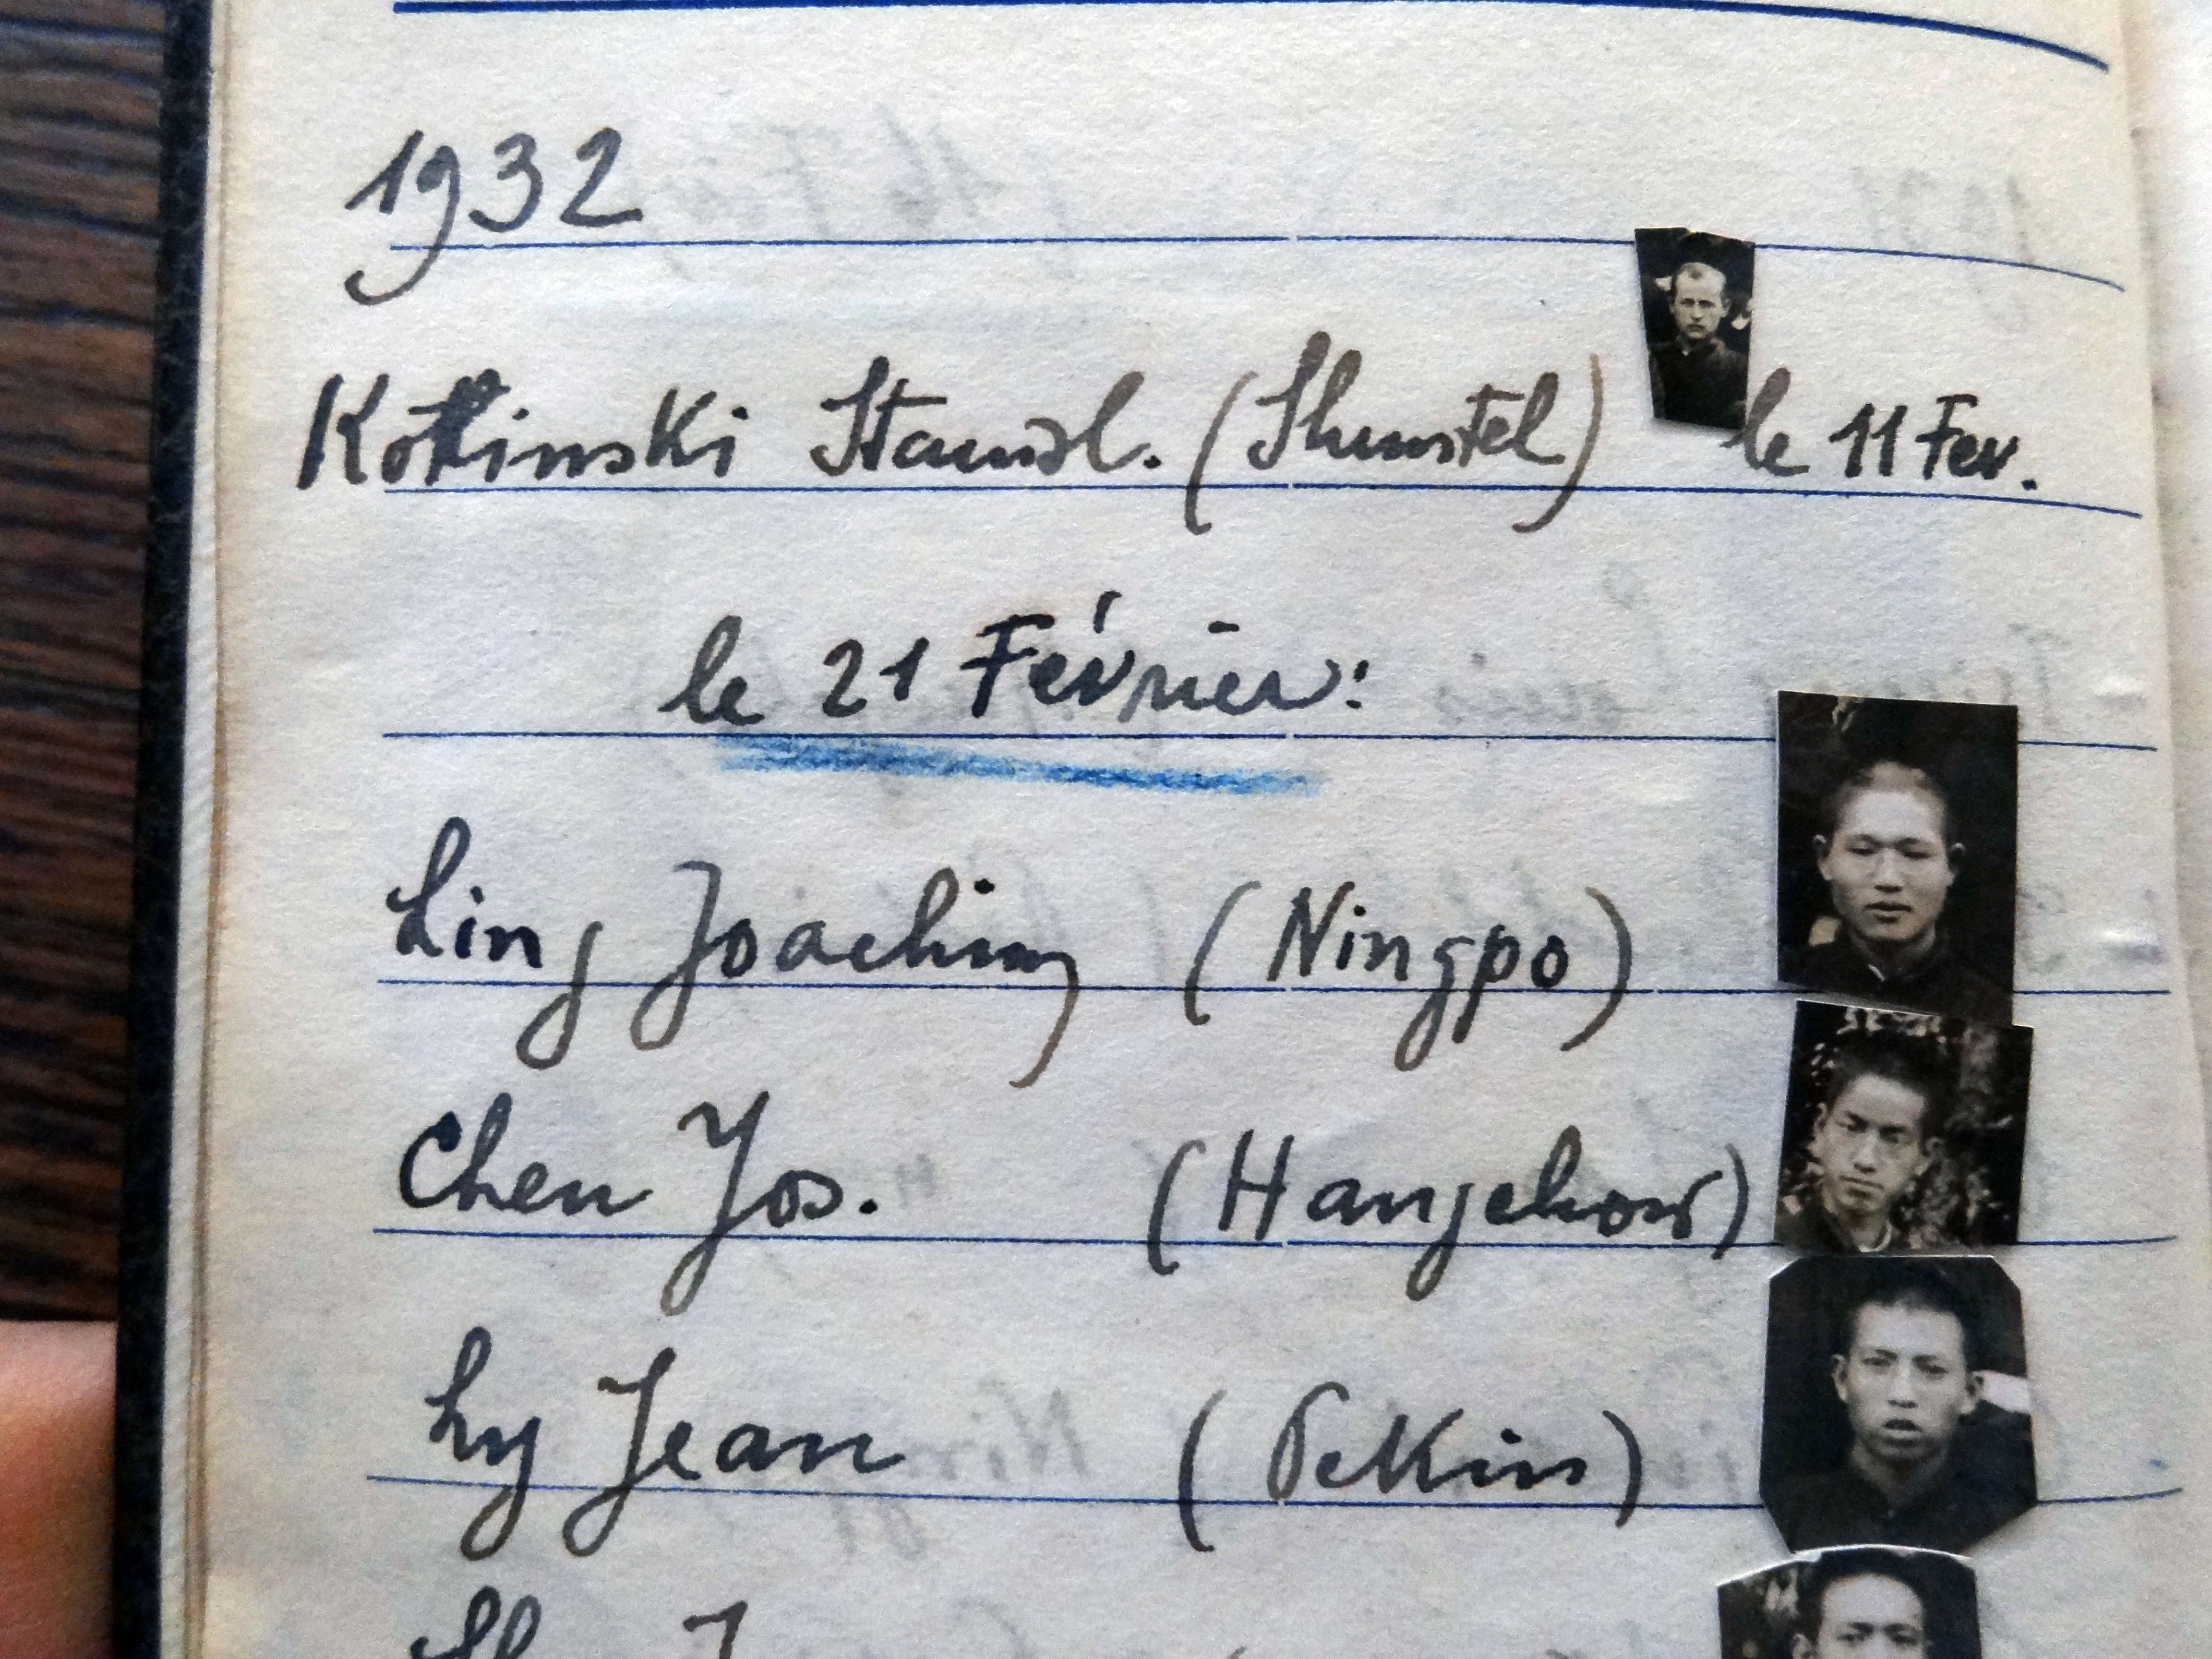 1932
Kotlinski Stanisl. (Shuntel) le 11 Fev.
le 21 Février:
Ling Joachim (Ningpo)
Chen Jos. (Hangchow)
Ly Jean (Pekin)